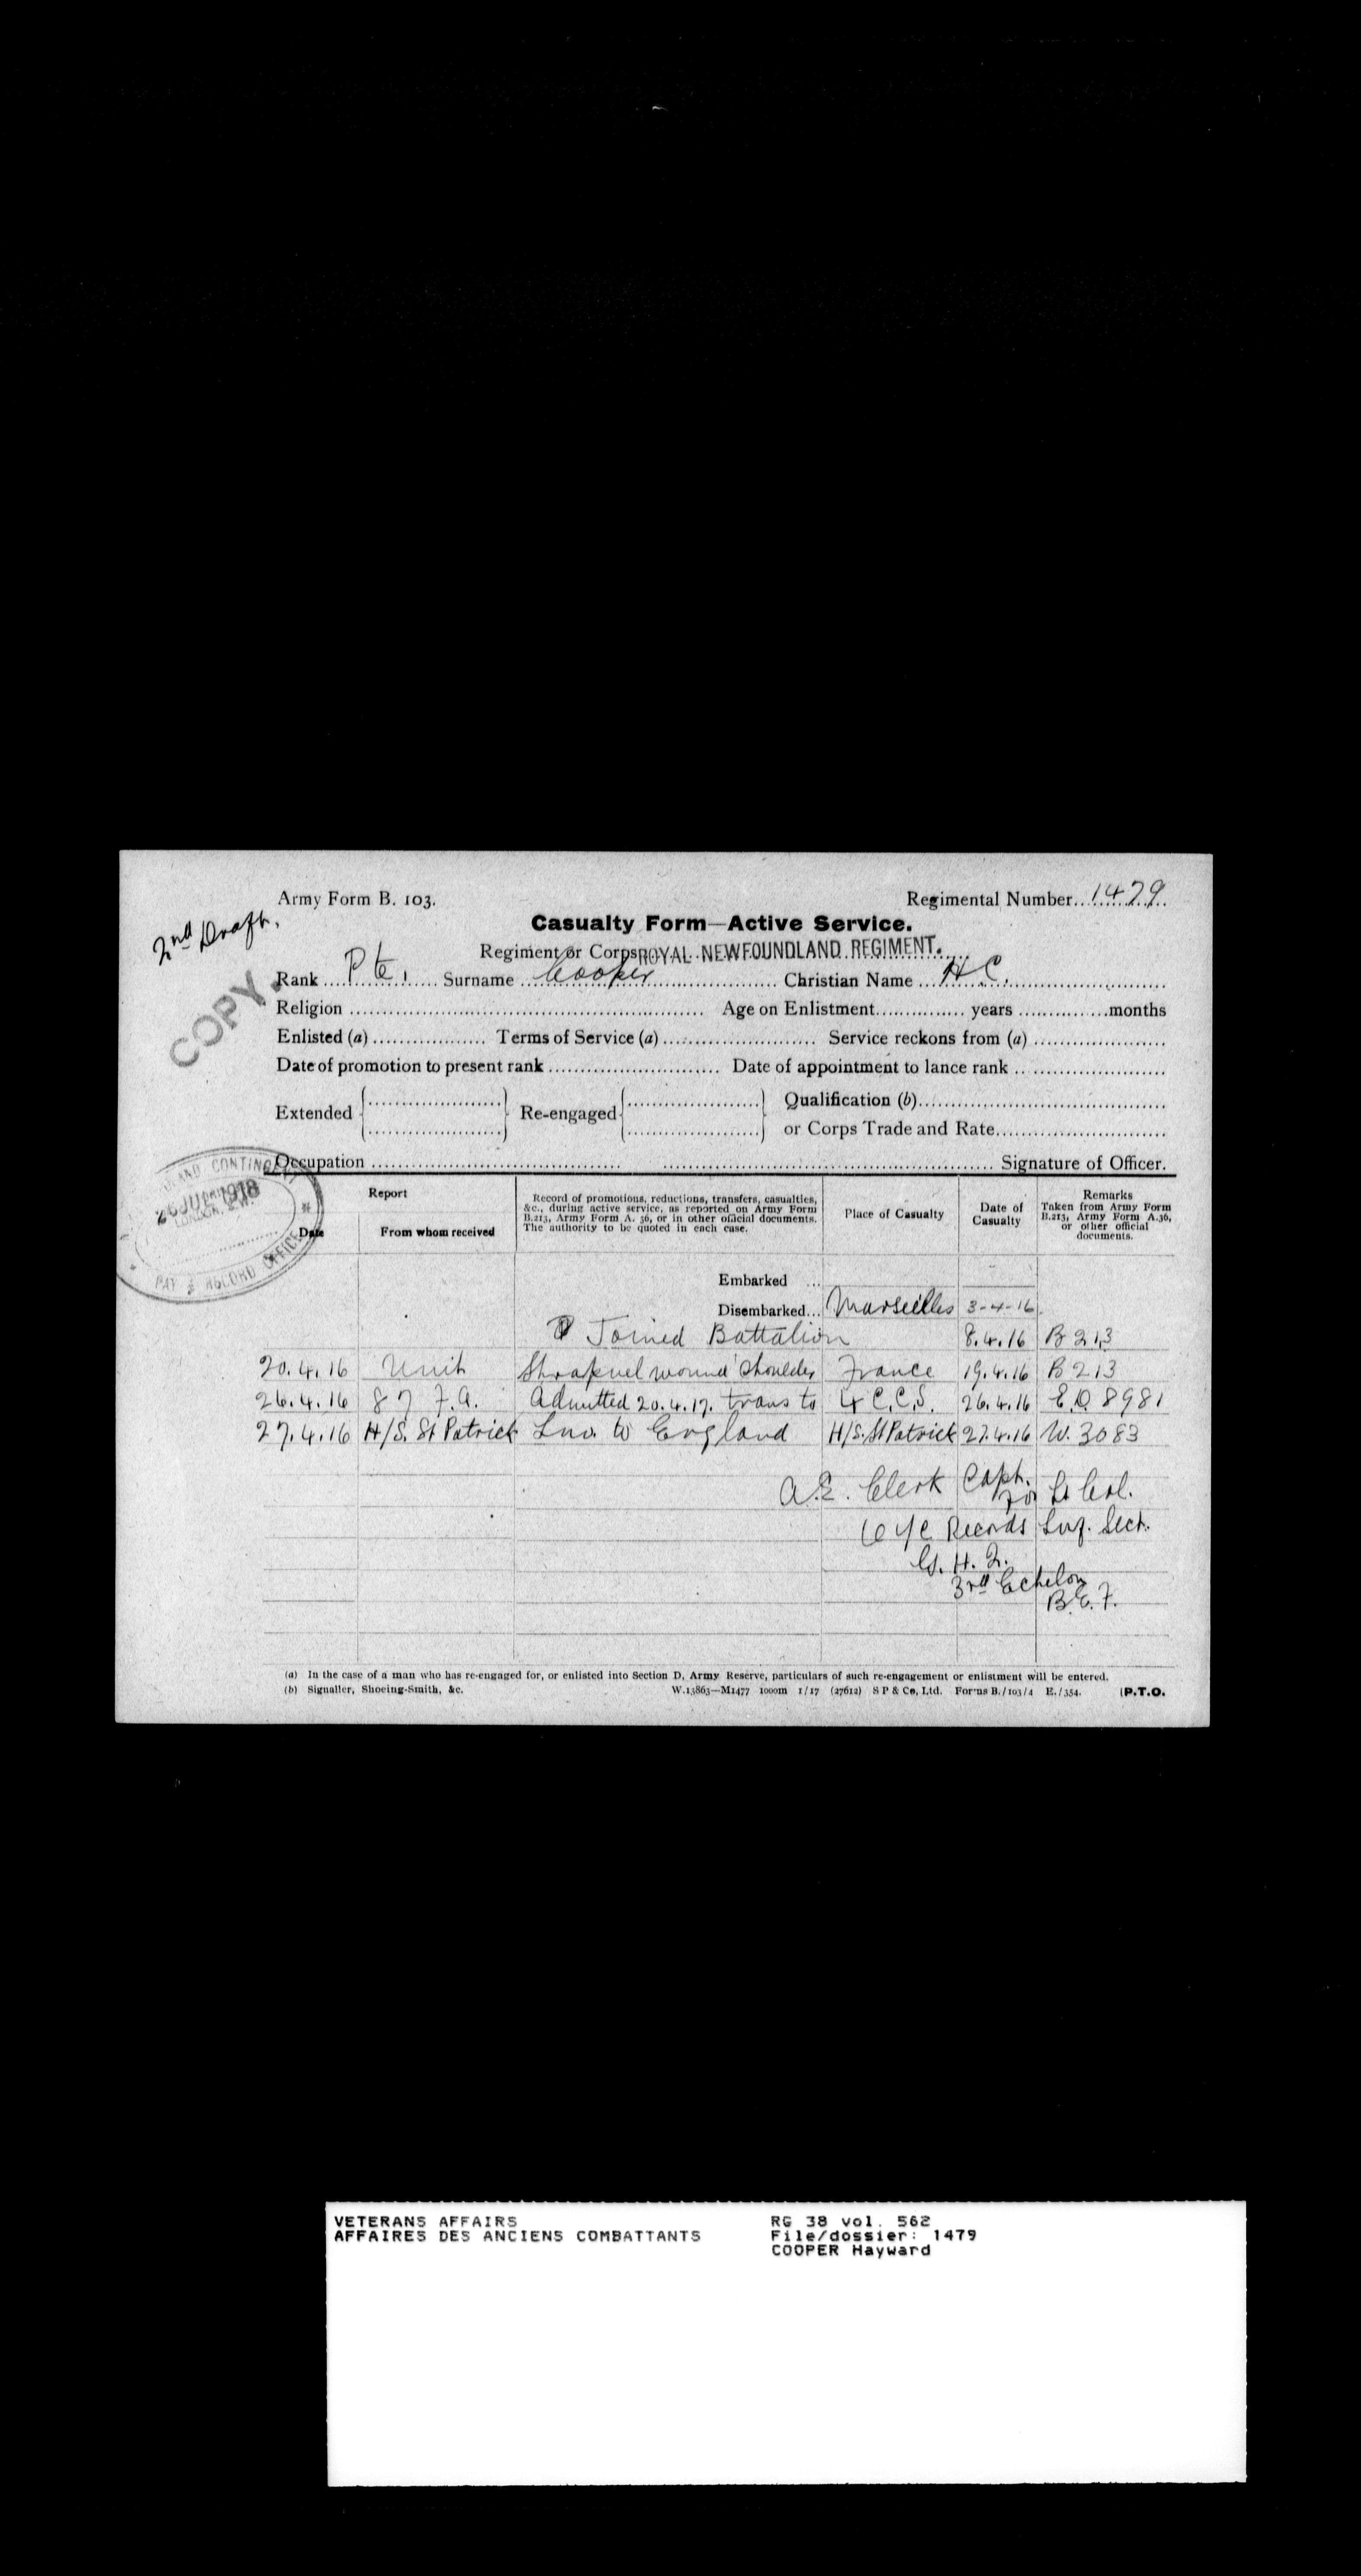 Army Form B. 103.
Regimental Number 1479
2nd Draft.
Casualty Form—Active Service.
Regiment or Corps ROYAL NEWFOUNDLAND REGIMENT.
COPY.
Rank Pte. Surname Cooper Christian Name H.C.
Religion Age on Enlistment years months
Enlisted (a) Terms of Service (a) Service reckons from (a)
Date of promotion to present rank Date of appointment to lance rank
Extended Re-engaged Qualification (b)
or Corps Trade and Rate
Occupation Signature of Officer.
CONTINGENT
1918
LONDON, S.W.
PAY & RECORD OFFICE
Report
Date From whom received
Record of promotions, reductions, transfers, casualties, &c., during active service, as reported on Army Form B.213, Army Form A. 36, or in other official documents. The authority to be quoted in each case.
Place of Casualty
Date of Casualty
Remarks
Taken from Army Form B.213, Army Form A.36, or other official documents.
Embarked ...
Disembarked... Marseilles 3-4-16
Joined Battalion 8.4.16 B 213
20.4.16 Unit Shrapnel wound shoulder France 19.4.16 B 213
26.4.16 87 F.A. Admitted 20.4.17. trans to 4 C.C.S. 26.4.16 E.O. 8981
27.4.16 H/S. St Patrick Inv. to England H/S. St Patrick 27.4.16 W. 3083
A.E. Clerk Capt.
for Lt Col.
i/c Records Inf. Sect.
G. H. Q.
3rd Echelon
B.E.F.
(a) In the case of a man who has re-engaged for, or enlisted into Section D, Army Reserve, particulars of such re-engagement or enlistment will be entered.
(b) Signaller, Shoeing-Smith, &c. W.13863—M1477 1000m 1/17 (27612) S P & Co, Ltd. Forms B./103/4 E./354. [P.T.O.
VETERANS AFFAIRS RG 38 vol. 562
AFFAIRES DES ANCIENS COMBATTANTS File/dossier: 1479
COOPER Hayward